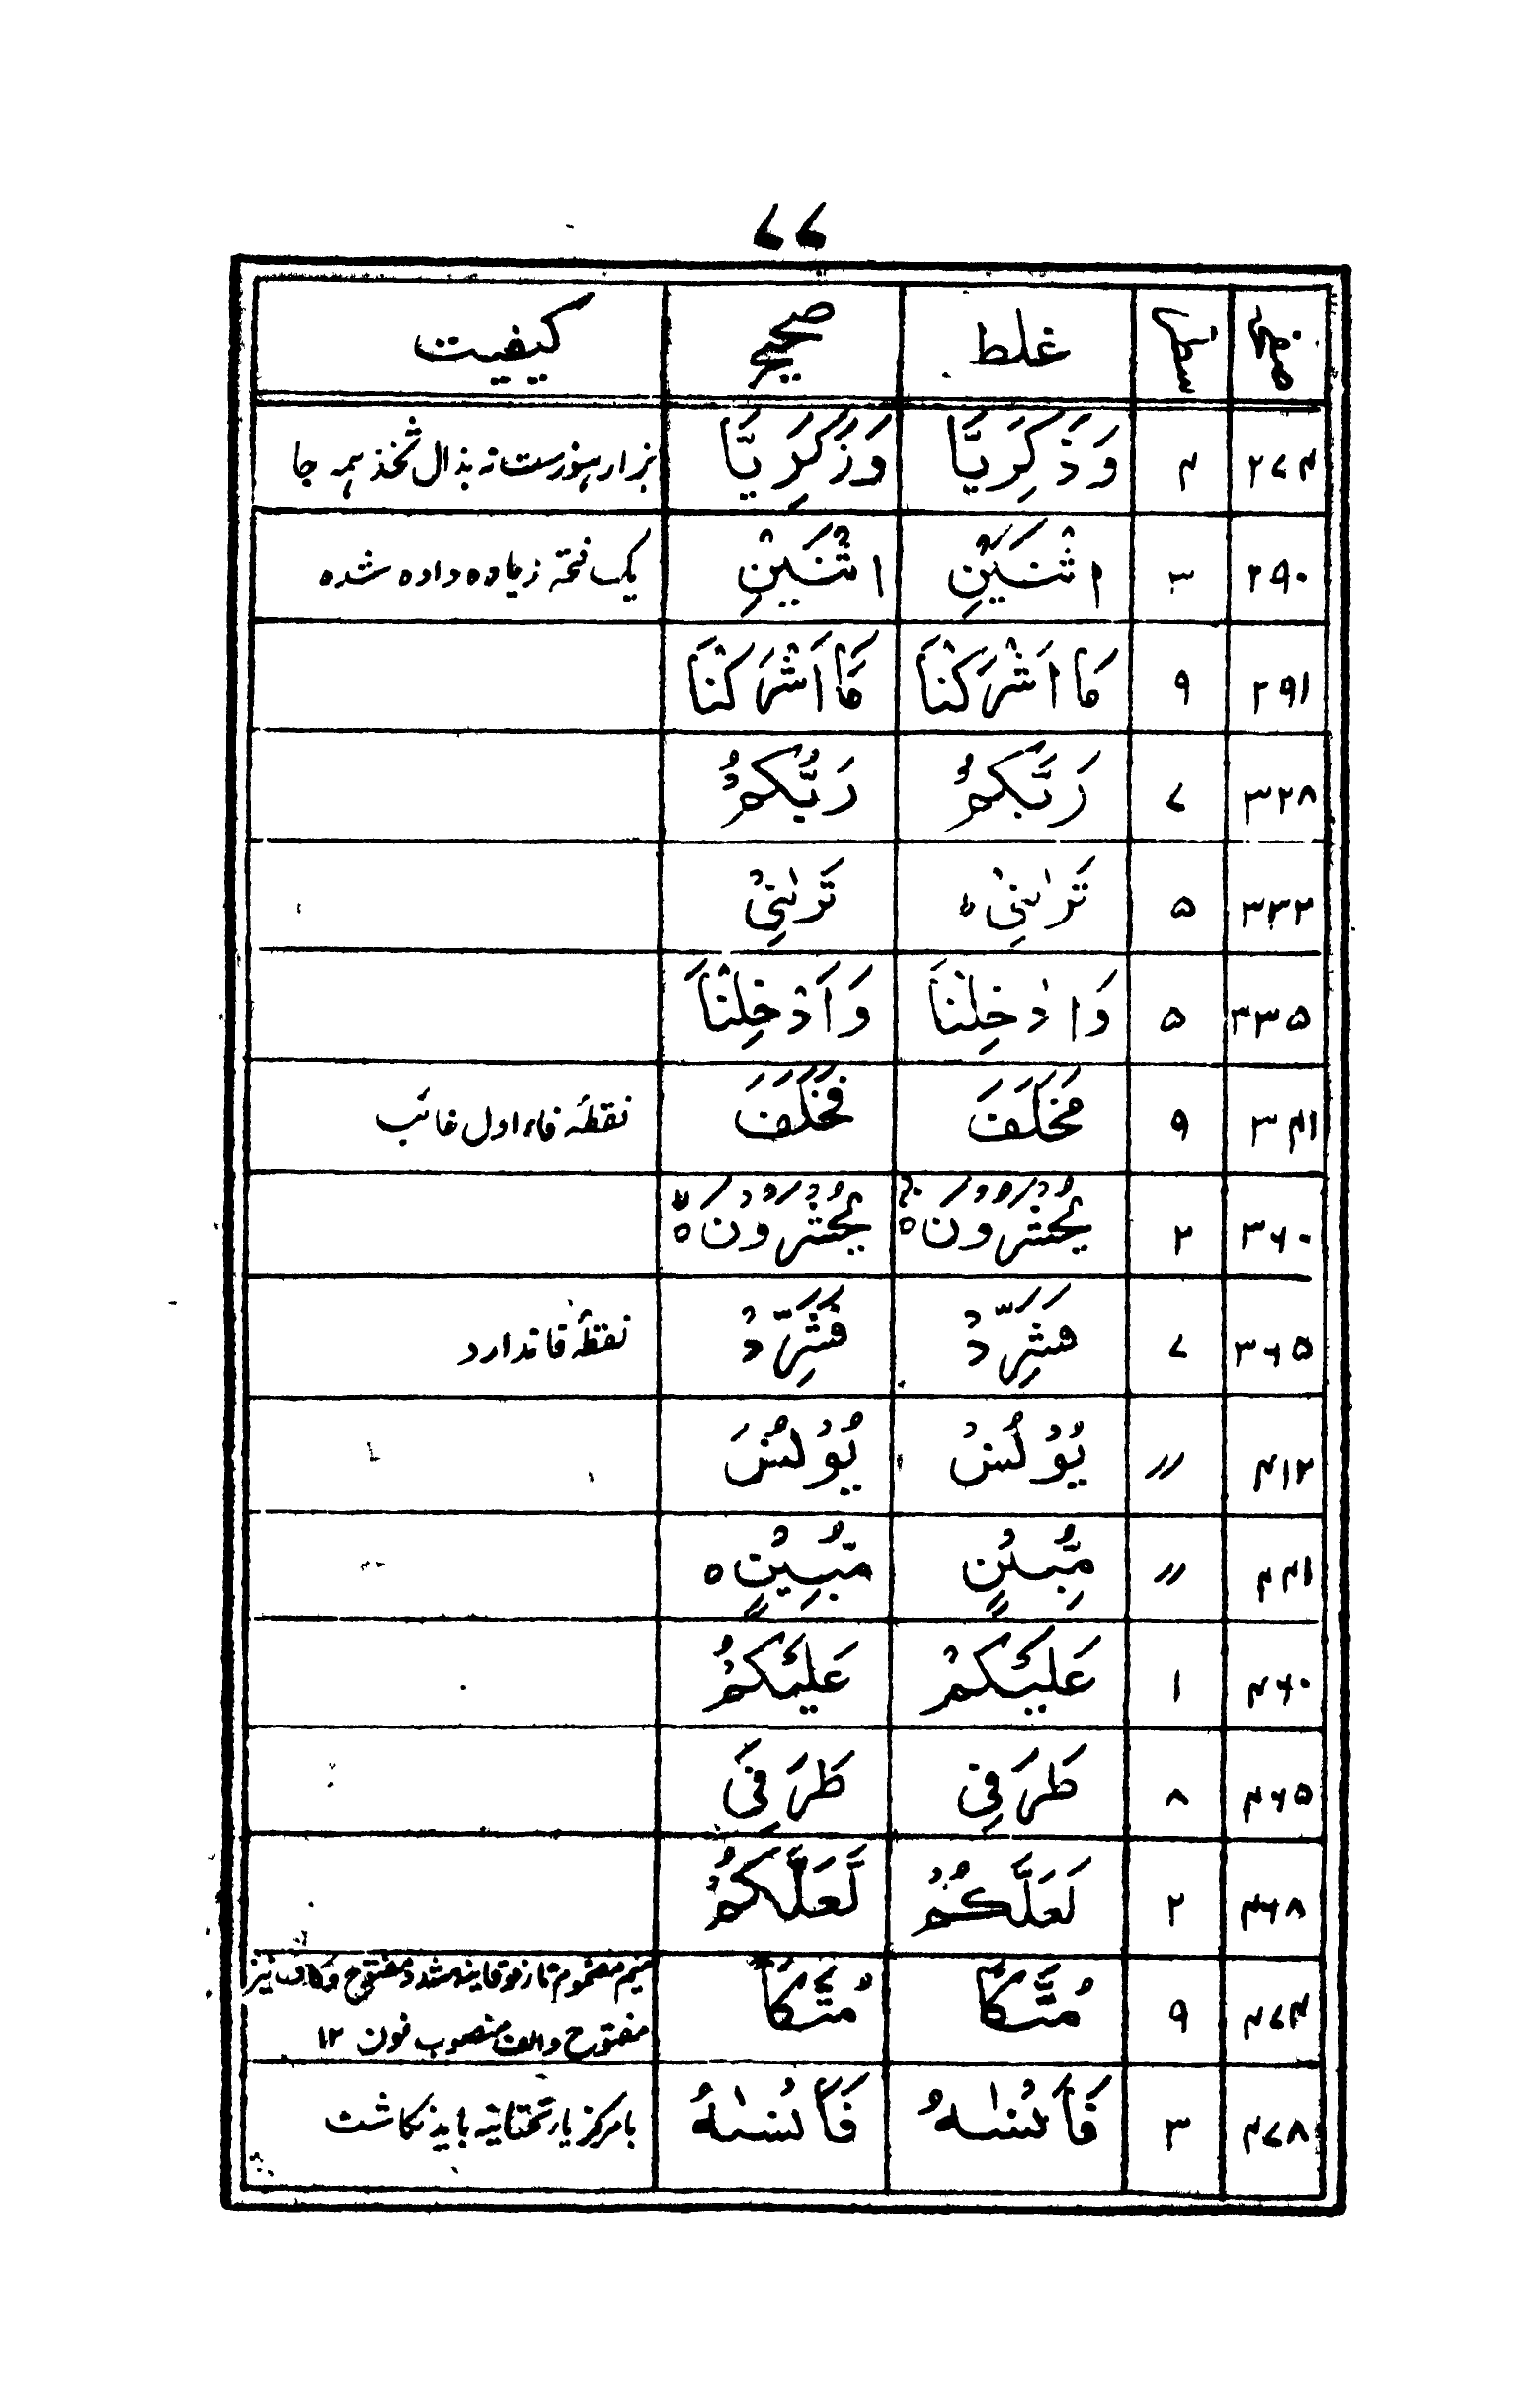 ۷۷
صفحه سطر غلط صحیح کیفیت
۲۷۴ ۴ وَذَكَرِيَّا وَزَكَرِيَّا جا
۲۹۰ ۳ اثْنَيَْنِ اثْنَيْنِ یک فتحہ زیادہ دادہ شدہ
۲۹۱ ۹ مَا اَشْرَكْنَا مَّا اَشْرَكْنَا
۳۲۸ ۷ رَبَّكُمُْ رَبُّكُمُْ
۳۳۲ ۵ تَرٰىنِىْ ہ تَرٰىنِىْ
۳۳۵ ۵ وَادْخِلْنَا وَاَدْخِلْنَا
۳۴۱ ۹ مَخَلَفَ فَخَلَفَ نقطۂ فاء اول غائب
۳۶۰ ۲ يُحْشَرُوْنَ ہ يُحْشَرُوْنَ ہ
۳۶۵ ۷ فَشَرِّدْ فَشَرِّدْ نقطۂ فا ندارد
۴۱۲ 〃 يُوْنُسْ يُوْنُسَ
۴۴۱ 〃 مُّبِىنٍ مُّبِيْنٍ ہ
۴۶۰ ۱ عَلَيْكُمْ عَلَيْكُمُْ
۴۶۵ ۸ طَرَفِى طَرَفَىِ
۴۶۸ ۲ لَعَلَّكُمُْ لَّعَلَّكُمُْ
۴۷۴ ۹ مُتَّكَأً مُتَّكَاً میم مضموم تاء فوقانیہ مشدد مفتوح وکاف نیز
مفتوح والف منصوب نون ۱۲
۴۷۸ ۳ فَاَنْسٰهُ فَاَنْسٰىهُ با مرکز یاء تحتانیہ باید نگاشت